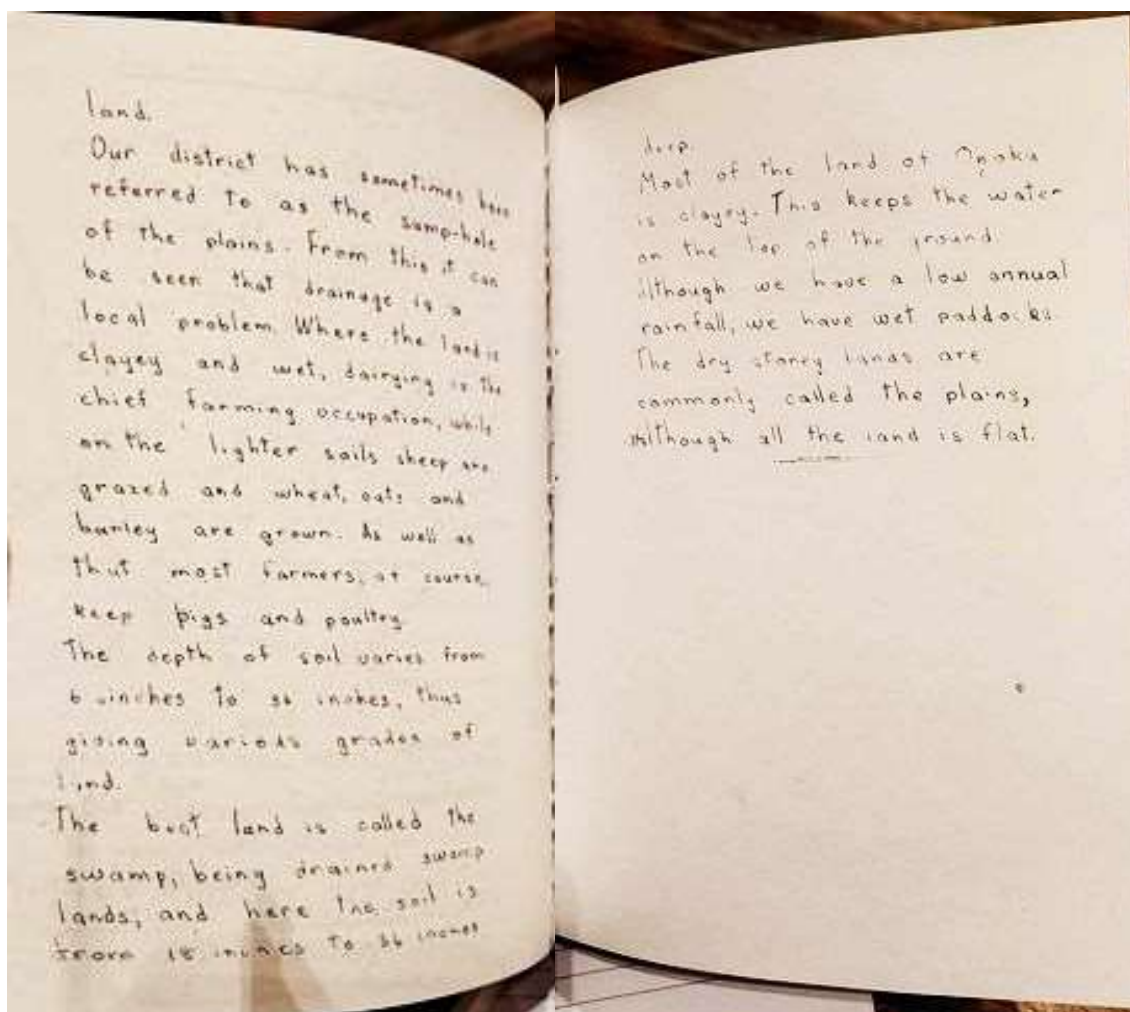 land.
Our district has sometimes been
referred to as the sump-hole
of the plains. From this it can
be seen that drainage is a
local problem. Where the land is
clayey and wet, dairying is the
chief farming occupation, while
on the lighter soils sheep are
grazed and wheat, oats and
barley are grown. As well as
that most farmers, of course,
keep pigs and poultry
The depth of soil varies from
6 inches to 36 inches, thus
giving various grades of
land.
The best land is called the
swamp, being drained swamp
lands, and here the soil is
from 18 inches to 36 inches
deep.
Most of the land of
is clayey. This keeps the water
on the top of the ground.
Although we have a low annual
rainfall, we have wet paddocks.
The dry stoney lands are
commonly called the plains,
although all the land is flat.